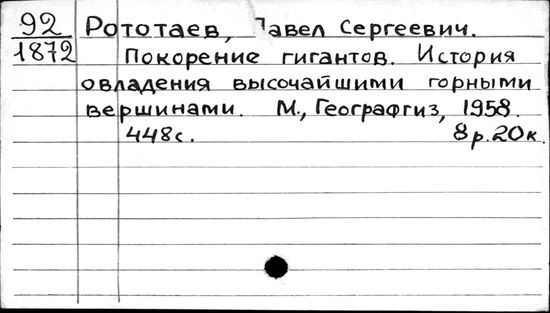 92 Рототаев, Павел Сергеевич.
1872 Покорение гигантов. История
овладения высочайшими горными
вершинами. М., Географгиз, 1958.
448с. 8р.20к.